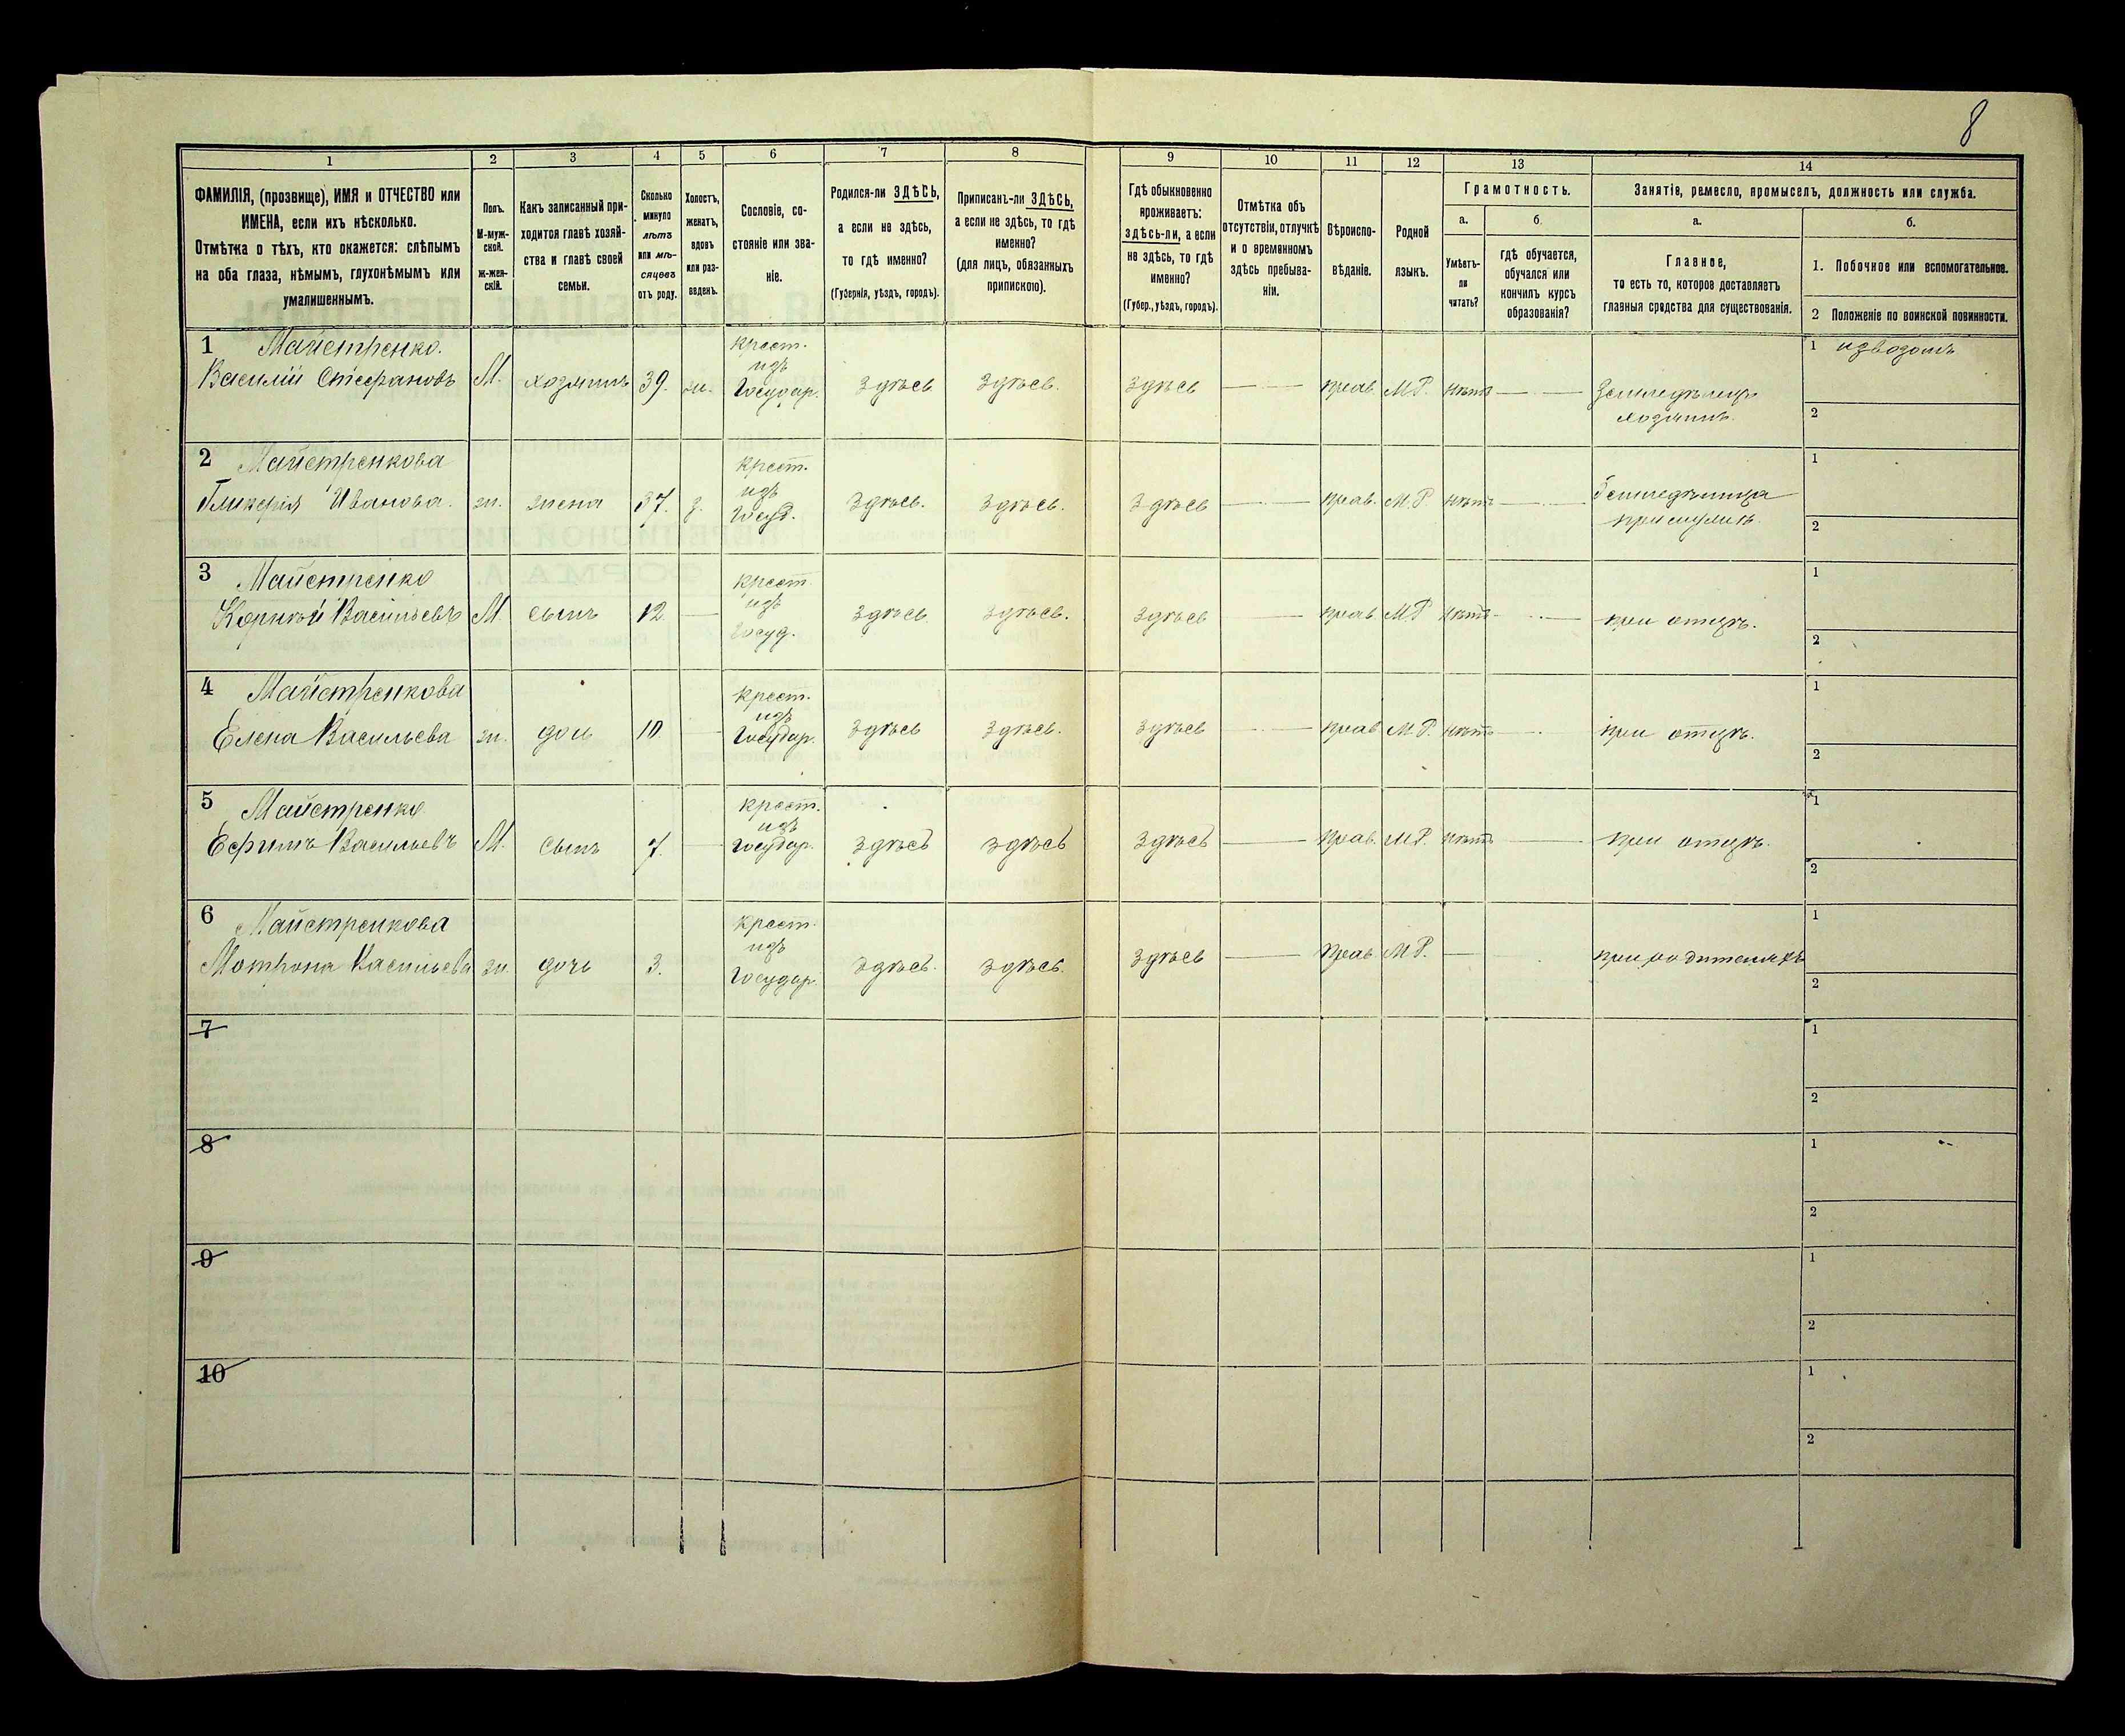 8
1 2 3 4 5 6 7 8 9 10 11 12 13 14
ФАМИЛІЯ, (прозвище), ИМЯ и ОТЧЕСТВО или
ИМЕНА, если ихъ нѣсколько.
Отмѣтка о тѣхъ, кто окажется: слѣпымъ
на оба глаза, нѣмымъ, глухонѣмымъ или
умалишеннымъ.
Полъ.
М-муж-
ской.
Ж-жен-
скій.
Какъ записанный при-
ходится главѣ хозяй-
ства и главѣ своей
семьи.
Сколько
минуло
лѣтъ
или мѣ-
сяцевъ
отъ роду.
Холостъ,
женатъ,
вдовъ
или раз-
веденъ.
Сословіе, со-
стояніе или зва-
ніе.
Родился-ли ЗДѢСЬ,
а если не здѣсь,
то гдѣ именно?
(Губернія, уѣздъ, городъ).
Приписанъ-ли ЗДѢСЬ,
а если не здѣсь, то гдѣ
именно?
(для лицъ, обязанныхъ
припискою).
Гдѣ обыкновенно
проживаетъ:
здѣсь-ли, а если
не здѣсь, то гдѣ
именно?
(Губер., уѣздъ, городъ).
Отмѣтка объ
отсутствіи, отлучкѣ
и о временномъ
здѣсь пребыва-
ніи.
Вѣроиспо-
вѣданіе.
Родной
языкъ.
Грамотность.
а.
Умѣетъ-
ли
читать?
б.
гдѣ обучается,
обучался или
кончилъ курсъ
образованія?
Занятіе, ремесло, промыселъ, должность или служба.
а.
Главное,
то есть то, которое доставляетъ
главныя средства для существованія.
б.
1. Побочное или вспомогательное.
2 Положеніе по воинской повинности.
1 Майстренко.
Василій Стефановъ
М. хозяинъ 39. ж.
крест.
изъ
Государ.
Здѣсь Здѣсь. Здѣсь — прав. М.Р. нѣтъ —
Земледѣлецъ
хозяинъ.
1 извозомъ
2
2 Майстренкова
Гликерія Иванова.
ж. жена 37. з.
крест.
изъ
Госуд.
Здѣсь. Здѣсь. Здѣсь — прав. М.Р. нѣтъ —
Земледѣлица
при мужѣ.
1
2
3 Майстренко
Корній Васильевъ
М. сынъ 12 —
крест.
изъ
Госуд.
Здѣсь Здѣсь. Здѣсь — прав М.Р нѣтъ —
при отцѣ.
1
2
4 Майстренкова
Елена Васильева
ж. дочь 10 —
крест.
изъ
Государ.
Здѣсь Здѣсь. Здѣсь — прав М.Р. нѣтъ —
при отцѣ.
1
2
5 Майстренко
Ефимъ Васильевъ
М. сынъ 7. —
крест.
изъ
Государ.
Здѣсь Здѣсь Здѣсь — прав. М.Р. нѣтъ —
при отцѣ.
1
2
6 Майстренкова
Мотрона Васильева
ж. дочь 3.
крест.
изъ
Государ.
Здѣсь. Здѣсь. Здѣсь — Прав М.Р. —
при родителяхъ
1
2
7
1
2
8
1
2
9
1
2
10
1
2